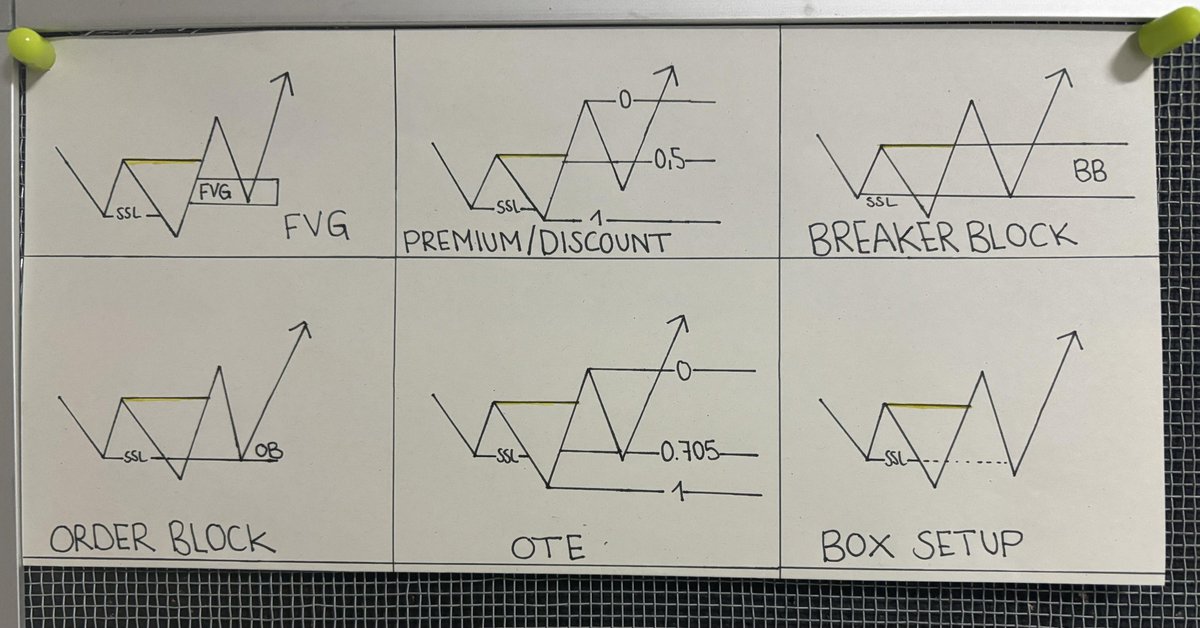 SSL
FVG
FVG
0
0,5
SSL
1
PREMIUM/DISCOUNT
SSL
BB
BREAKER BLOCK
SSL
OB
ORDER BLOCK
0
SSL
0.705
1
OTE
SSL
BOX SETUP